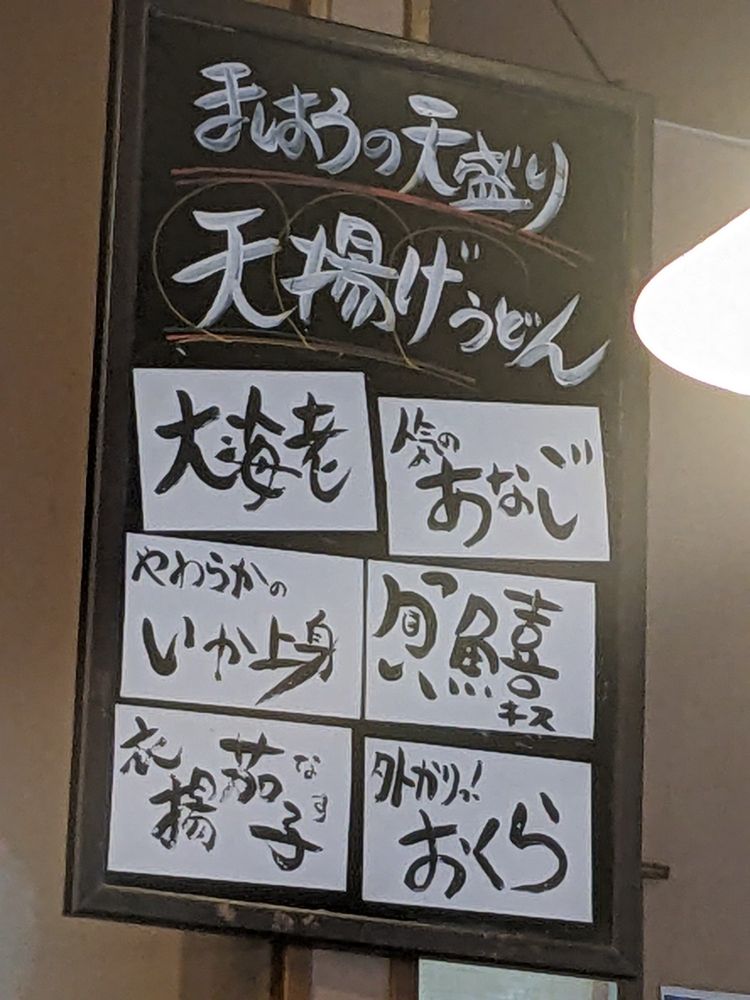 ましはうの天盛り
天揚げうどん
大海老
人気の
あなご
やわらかの
いか上身
鱚
キス
衣揚
茄子
なす
外かりっ!
おくら